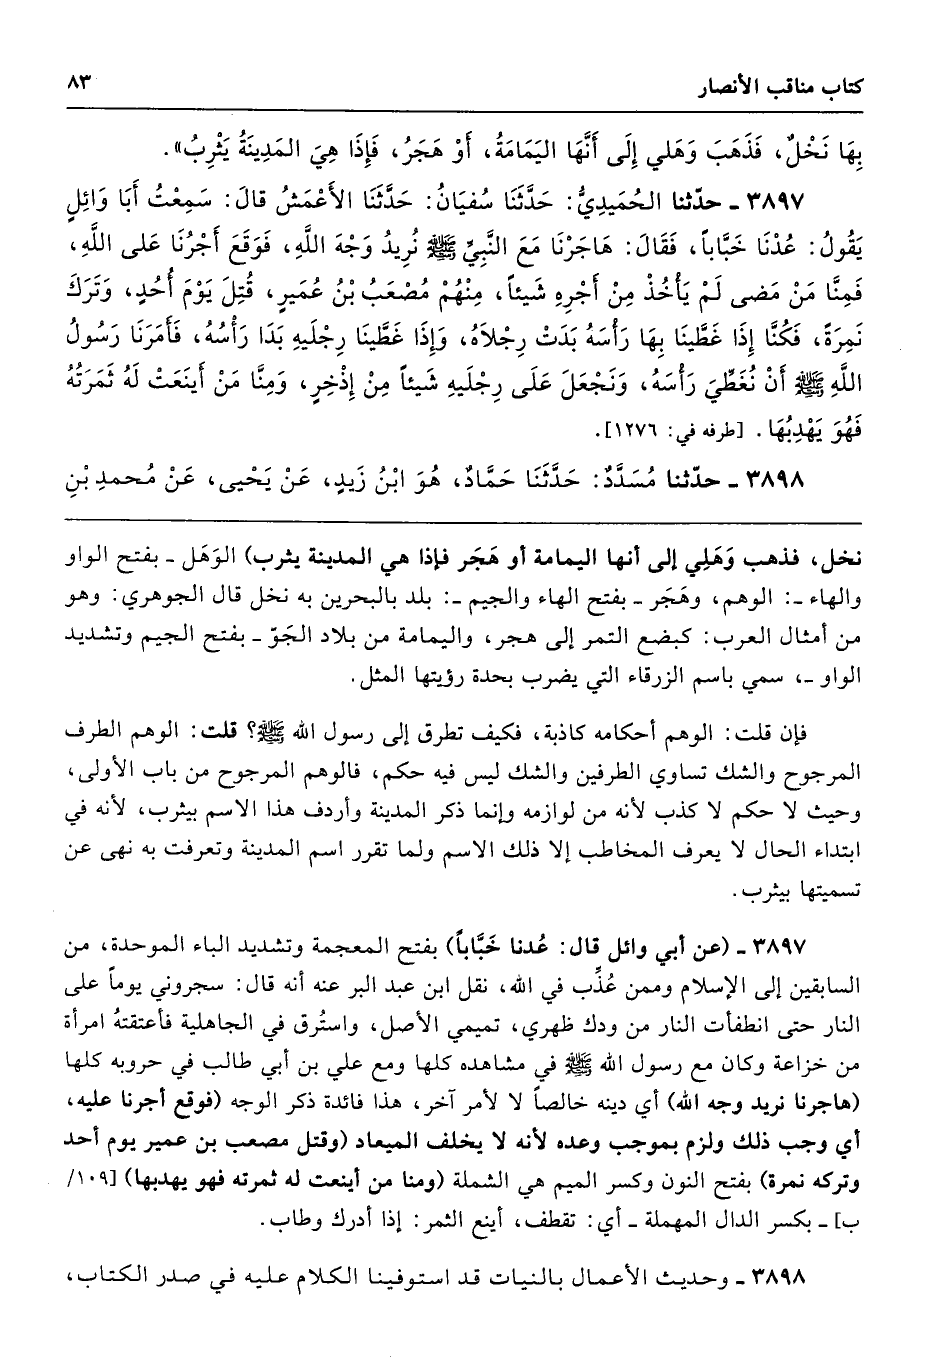 كتاب مناقب الأنصار ٨٣
بِهَا نَخْلٌ، فَذَهَبَ وَهَلي إِلَى أَنَّهَا اليَمَامَةُ، أَوْ هَجَرُ، فَإِذَا هِيَ المَدِينَةُ يَثْرِبُ».
٣٨٩٧ ـ حدّثنا الحُمَيدِيُّ: حَدَّثَنَا سُفيَانُ: حَدَّثَنَا الأَعْمَشُ قالَ: سَمِعْتُ أَبَا وَائِلٍ
يَقُولُ: عُدْنَا خَبَّاباً، فَقَالَ: هَاجَرْنَا مَعَ النَّبِيِّ ﷺ نُرِيدُ وَجْهَ اللَّهِ، فَوَقَعَ أَجْرُنَا عَلى اللَّهِ،
فَمِنَّا مَنْ مَضى لَمْ يَأْخُذْ مِنْ أَجْرِهِ شَيئاً، مِنْهُمْ مُصْعَبُ بْنُ عُمَيرٍ، قُتِلَ يَوْمَ أُحُدٍ، وَتَرَكَ
نَمِرَةً، فَكُنَّا إِذَا غَطَّينَا بِهَا رَأْسَهُ بَدَتْ رِجْلاَهُ، وَإِذَا غَطَّينَا رِجْلَيهِ بَدَا رَأْسُهُ، فَأَمَرَنَا رَسُولُ
اللَّهِ ﷺ أَنْ نُغَطِّيَ رَأْسَهُ، وَنَجْعَلَ عَلَى رِجْلَيهِ شَيئاً مِنْ إِذْخِرٍ، وَمِنَّا مَنْ أَينَعَتْ لَهُ ثَمَرَتُهُ
فَهُوَ يَهْدِبُهَا. [طرفه في: ١٢٧٦].
٣٨٩٨ ـ حدّثنا مُسَدَّدٌ: حَدَّثَنَا حَمَّادٌ، هُوَ ابْنُ زَيدٍ، عَنْ يَحْيى، عَنْ مُحمدِ بْنِ
نخل، فذهب وَهَلِي إلى أنها اليمامة أو هَجَر فإذا هي المدينة يثرب) الوَهَل ـ بفتح الواو
والهاء ـ: الوهم، وهَجَر ـ بفتح الهاء والجيم ـ: بلد بالبحرين به نخل قال الجوهري: وهو
من أمثال العرب: كبضع التمر إلى هجر، واليمامة من بلاد الجَوّ ـ بفتح الجيم وتشديد
الواو ـ، سمي باسم الزرقاء التي يضرب بحدة رؤيتها المثل.
فإن قلت: الوهم أحكامه كاذبة، فكيف تطرق إلى رسول الله ﷺ؟ قلت: الوهم الطرف
المرجوح والشك تساوي الطرفين والشك ليس فيه حكم، فالوهم المرجوح من باب الأولى،
وحيث لا حكم لا كذب لأنه من لوازمه وإنما ذكر المدينة وأردف هذا الاسم بيثرب، لأنه في
ابتداء الحال لا يعرف المخاطب إلا ذلك الاسم ولما تقرر اسم المدينة وتعرفت به نهى عن
تسميتها بيثرب.
٣٨٩٧ ـ (عن أبي وائل قال: عُدنا خَبَّاباً) بفتح المعجمة وتشديد الباء الموحدة، من
السابقين إلى الإسلام وممن عُذِّب في الله، نقل ابن عبد البر عنه أنه قال: سجروني يوماً على
النار حتى انطفأت النار من ودك ظهري، تميمي الأصل، واستُرق في الجاهلية فأعتقتهُ امرأة
من خزاعة وكان مع رسول الله ﷺ في مشاهده كلها ومع علي بن أبي طالب في حروبه كلها
(هاجرنا نريد وجه الله) أي دينه خالصاً لا لأمر آخر، هذا فائدة ذكر الوجه (فوقع أجرنا عليه،
أي وجب ذلك ولزم بموجب وعده لأنه لا يخلف الميعاد (وقتل مصعب بن عمير يوم أحد
وتركه نمرة) بفتح النون وكسر الميم هي الشملة (ومنا من أينعت له ثمرته فهو يهدبها) [١٠٩/
ب] ـ بكسر الدال المهملة ـ أي: تقطف، أينع الثمر: إذا أدرك وطاب.
٣٨٩٨ ـ وحديث الأعمال بالنيات قد استوفينا الكلام عليه في صدر الكتاب،